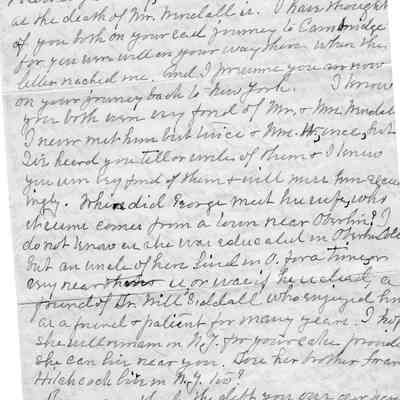 at the death of Mr. Mindall is. I have thought
of you both on your sad journey to Cambridge
for you were well on your way there when the
letter reached me. And I presume you are now
on your journey back to New York. I know
you both were very fond of Mr. & Mrs.
I never met him but twice & Mrs. H, once, but
I've heard you tell or write of them & I know
you were very fond of them & will miss him exceed
ingly. When did George meet his wife, who
it seems comes from a town near Oberlin? I
do not know as she was educated in Oberlin
but an uncle of hers lived in O. for a time or
very near & was a
friend of Dr. Will Siddall who enjoyed him
as a friend & patient for many years. I hope
she will remain in N.Y. for your sake provided
she can live near you. Does her brother
Hitchcock live in N.Y. too?